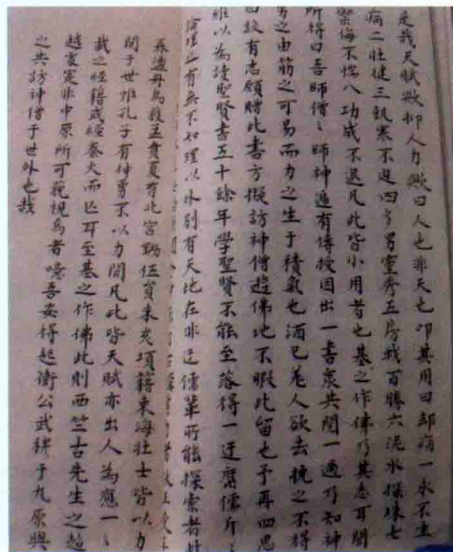 是哉天賦歟抑人力歟曰人也非天也叩其用曰却病一永不生
病二壯健三飢寒不迫四多男靈秀五房戰百勝六泥水探珠七
禦侮不惴八功成不退凡此皆小用者也基之作佛乃其志耳問
所得曰吾師僧〻師神遞有傳授因出一書衆共閱一過乃知神
勇之由筋之可易而力之生于積氣也酒已羌人欲去挽之不得
曰故有志願贈此書方擬訪神僧遊佛地不暇此留也予再四思
惟以為讀聖賢書五十餘年學聖賢不能至落得一迂腐儒斤〻
論理之有無不知理以外別有天地在非迂儒輩所能探索者
盪舟烏獲孟賁夏育北宮黝伍員朱亥項籍東海壯士皆以力
聞于世惟孔子有神勇不以力聞凡此皆天賦亦出人為應一〻
載之經籍或經秦火而亡耳至基之作佛此則西竺古先生之超
越處實非中原所可窺視焉者噫吾安得起衛公武穆于九原與
之共訪神僧于世外也哉